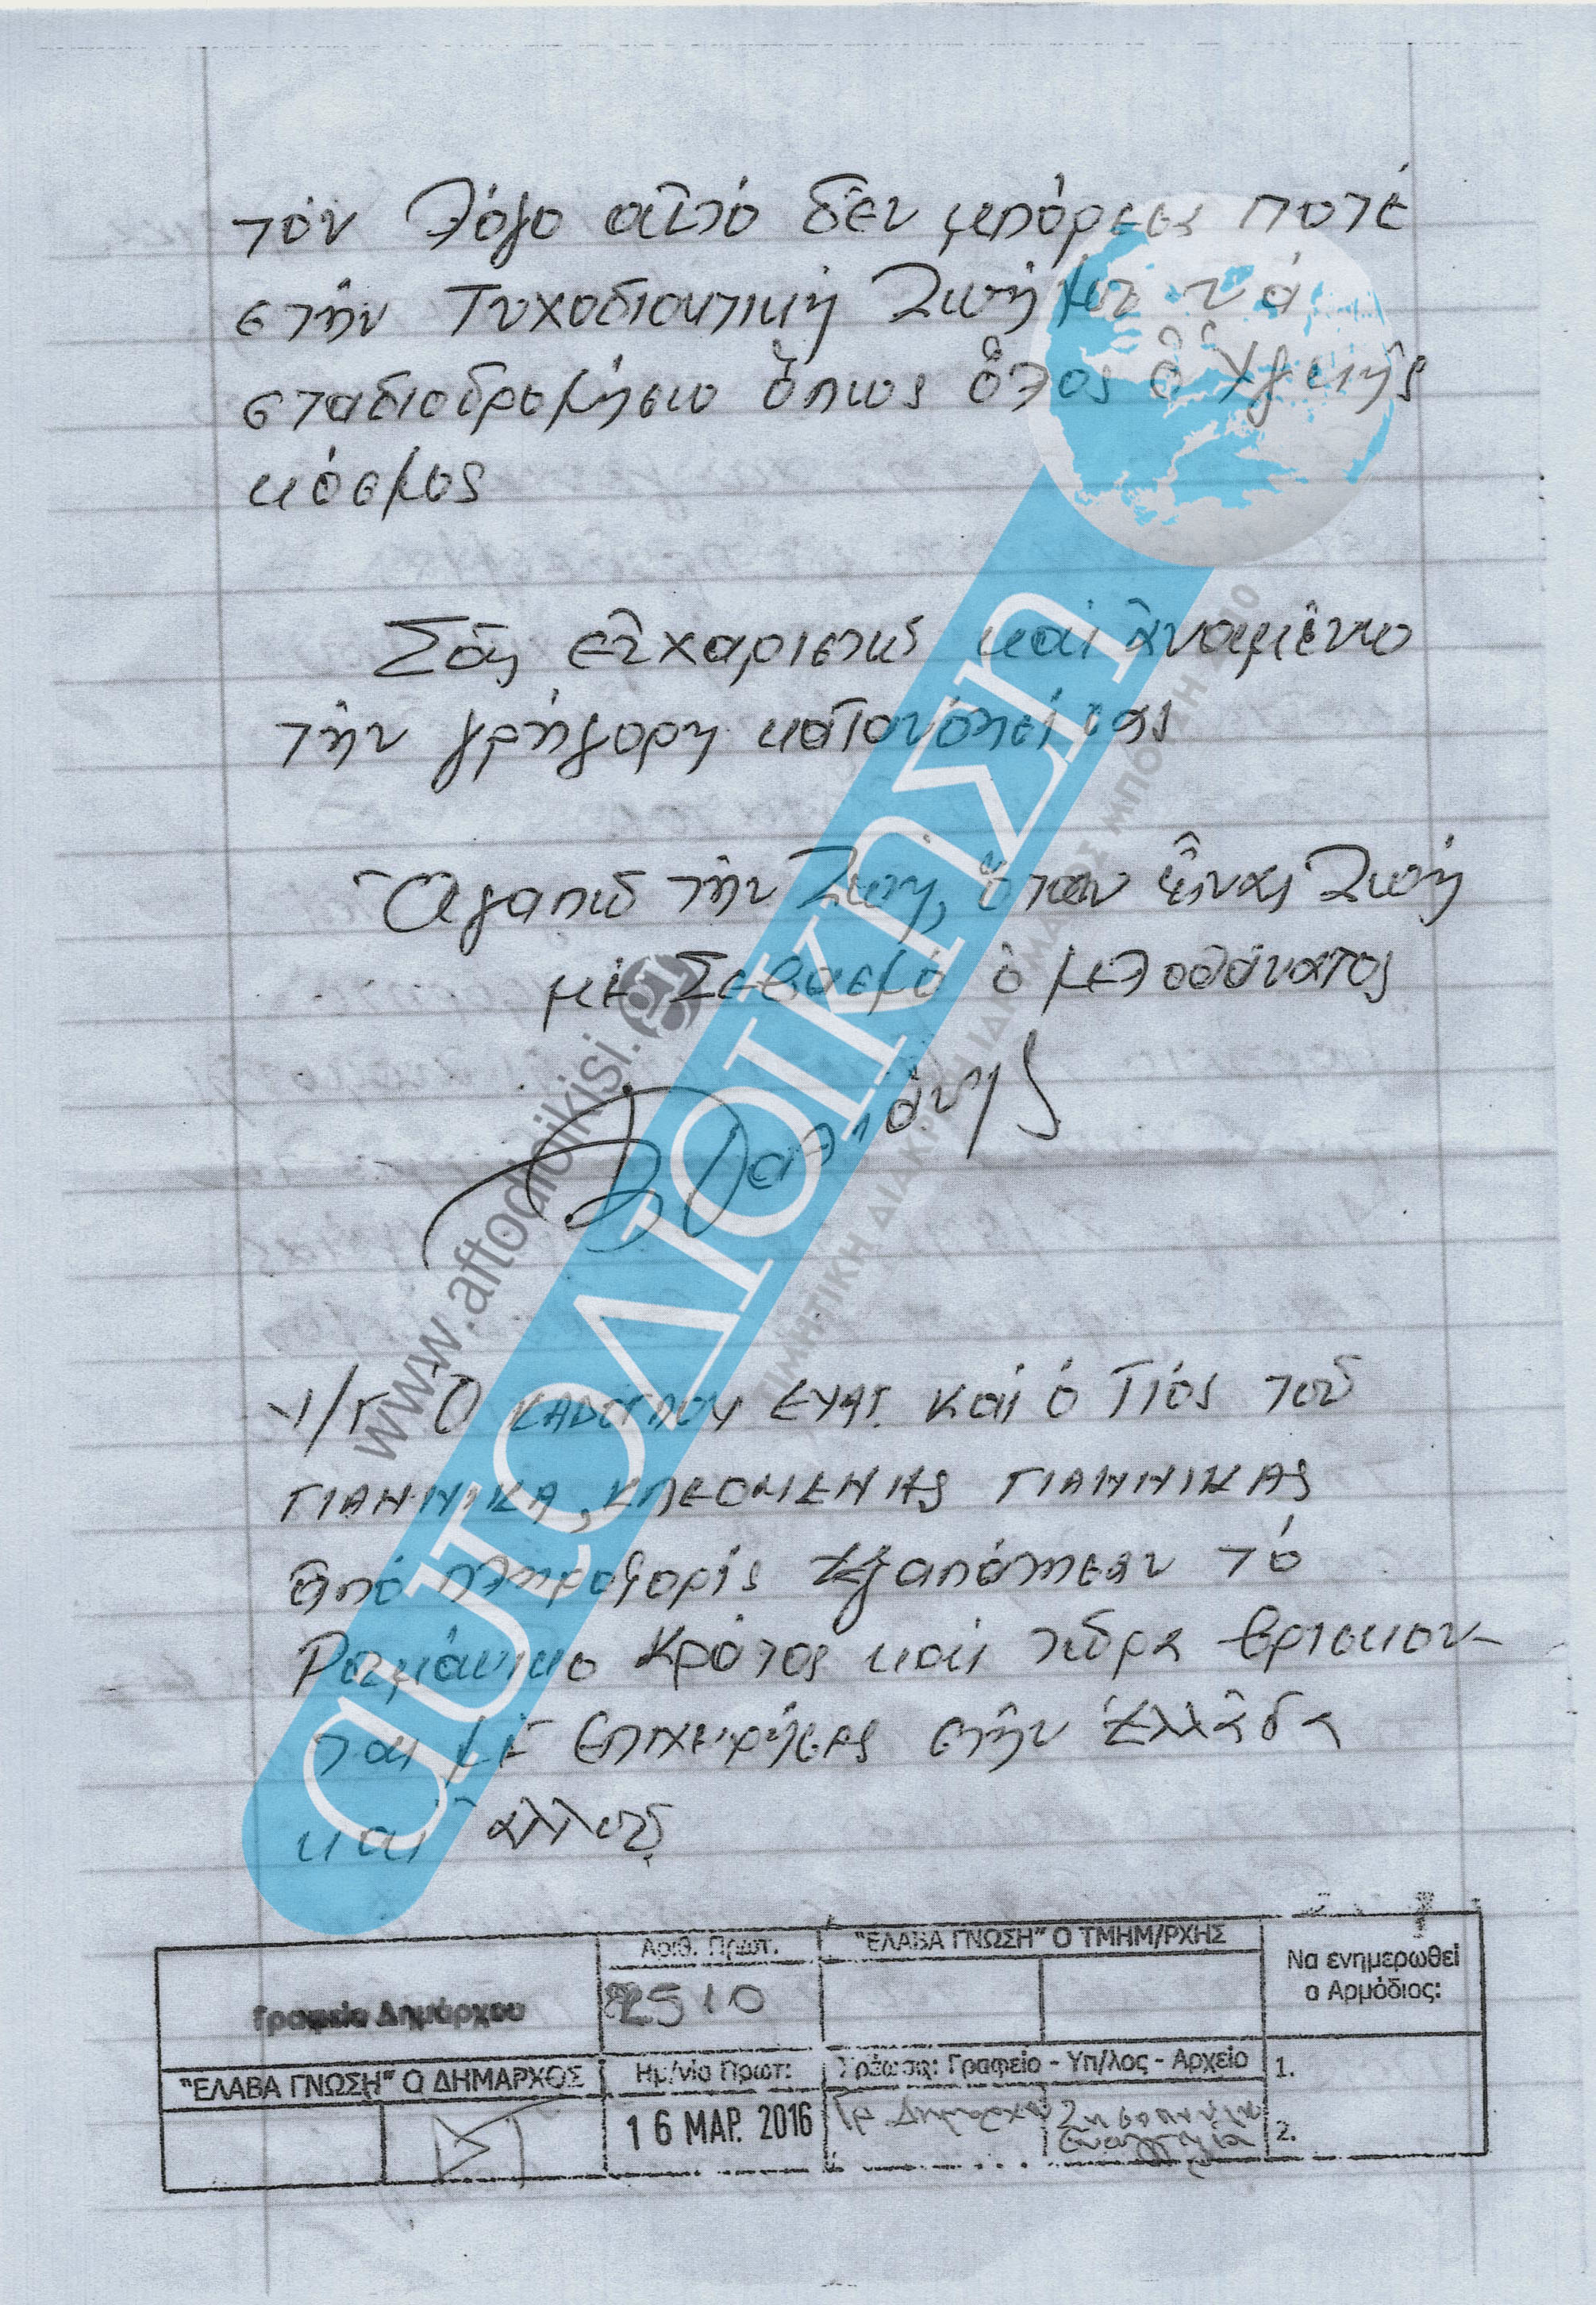 τόν λόγο αὐτό δέν μπόρεσα ποτέ
στήν Τυχοδιωκτική Ζωή μου νά
σταδιοδρομήσω ὅπως ὅλος ὁ Ὑγειής
κόσμος
Σᾶς εὐχαριστῶ καί ἀναμένω
τήν γρήγορη
Ἀγαπῶ τήν Ζωή, ὅταν εἶναι Ζωή
μέ Σεβασμό ὁ μελοθάνατος
Υ/Γ Ὁ ΕΥΑΓ. Καί ὁ Υἱός τοῦ
ΓΙΑΝΝΙΚΑ, ΚΛΕΟΜΕΝΗΣ ΓΙΑΝΝΙΚΑΣ
ἀπό πληροφορίς ἐξαπάτησαν τό
Ρουμάνικο Κράτος καί τώρα βρίσκον-
ται μέ ἐπιχειρήσεις στήν Ἑλλάδα
καί ἀλλοῦ
αυτοΔΙΟΙΚΗΣΗ
www.aftodioikisi.gr
Αριθ. Πρωτ. "ΕΛΑΒΑ ΓΝΩΣΗ" Ο ΤΜΗΜ/ΡΧΗΣ Να ενημερωθεί
ο Αρμόδιος:
Γραφείο Δημάρχου 2510
"ΕΛΑΒΑ ΓΝΩΣΗ" Ο ΔΗΜΑΡΧΟΣ Ημ/νία Πρωτ: Χρέωση: Γραφείο - Υπ/λος - Αρχείο 1.
16 ΜΑΡ. 2016 Γρ. Δημάρχου 2.